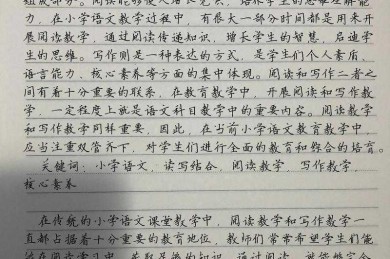 组成部分。阅读能够使人增长见识，培养学生的思维理解能
力，在小学语文教学过程中，有很大一部分时间都是用来开
展阅读教学，通过阅读传递知识，增长学生的智慧，启迪学
生的思维。写作则是一种表达的方式，是学生们个人素质、
语言能力、核心素养等方面的集中体现。阅读和写作二者之
间有着十分重要的联系，在教育教学中，开展阅读和写作教
学，一定程度上就是语文科目教学中的重要内容。阅读教学
和写作教学同样重要，因此，在当前小学语文教育教学中，
应当注重双管齐下，对学生们进行全面的教育和综合的培育。
关键词：小学语文，读写结合，阅读教学，写作教学，
核心素养
在传统的小学语文课堂教学中，阅读教学和写作教学一
直都占据着十分重要的教育地位，教师们常常希望学生们能